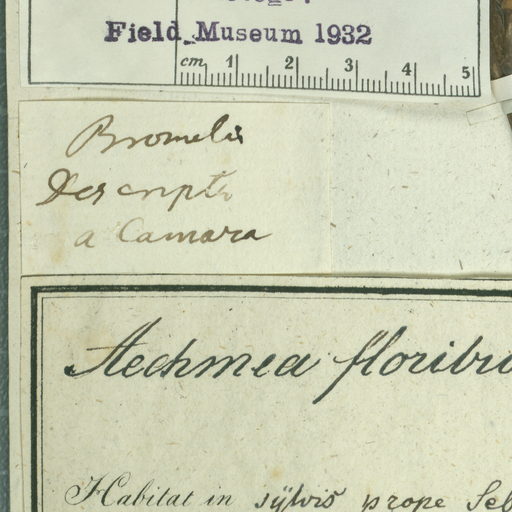 Field Museum 1932
cm 1 2 3 4 5
Bromelia
Descripta
a Camara
Aechmea floribu
Habitat in sylvis prope Seb